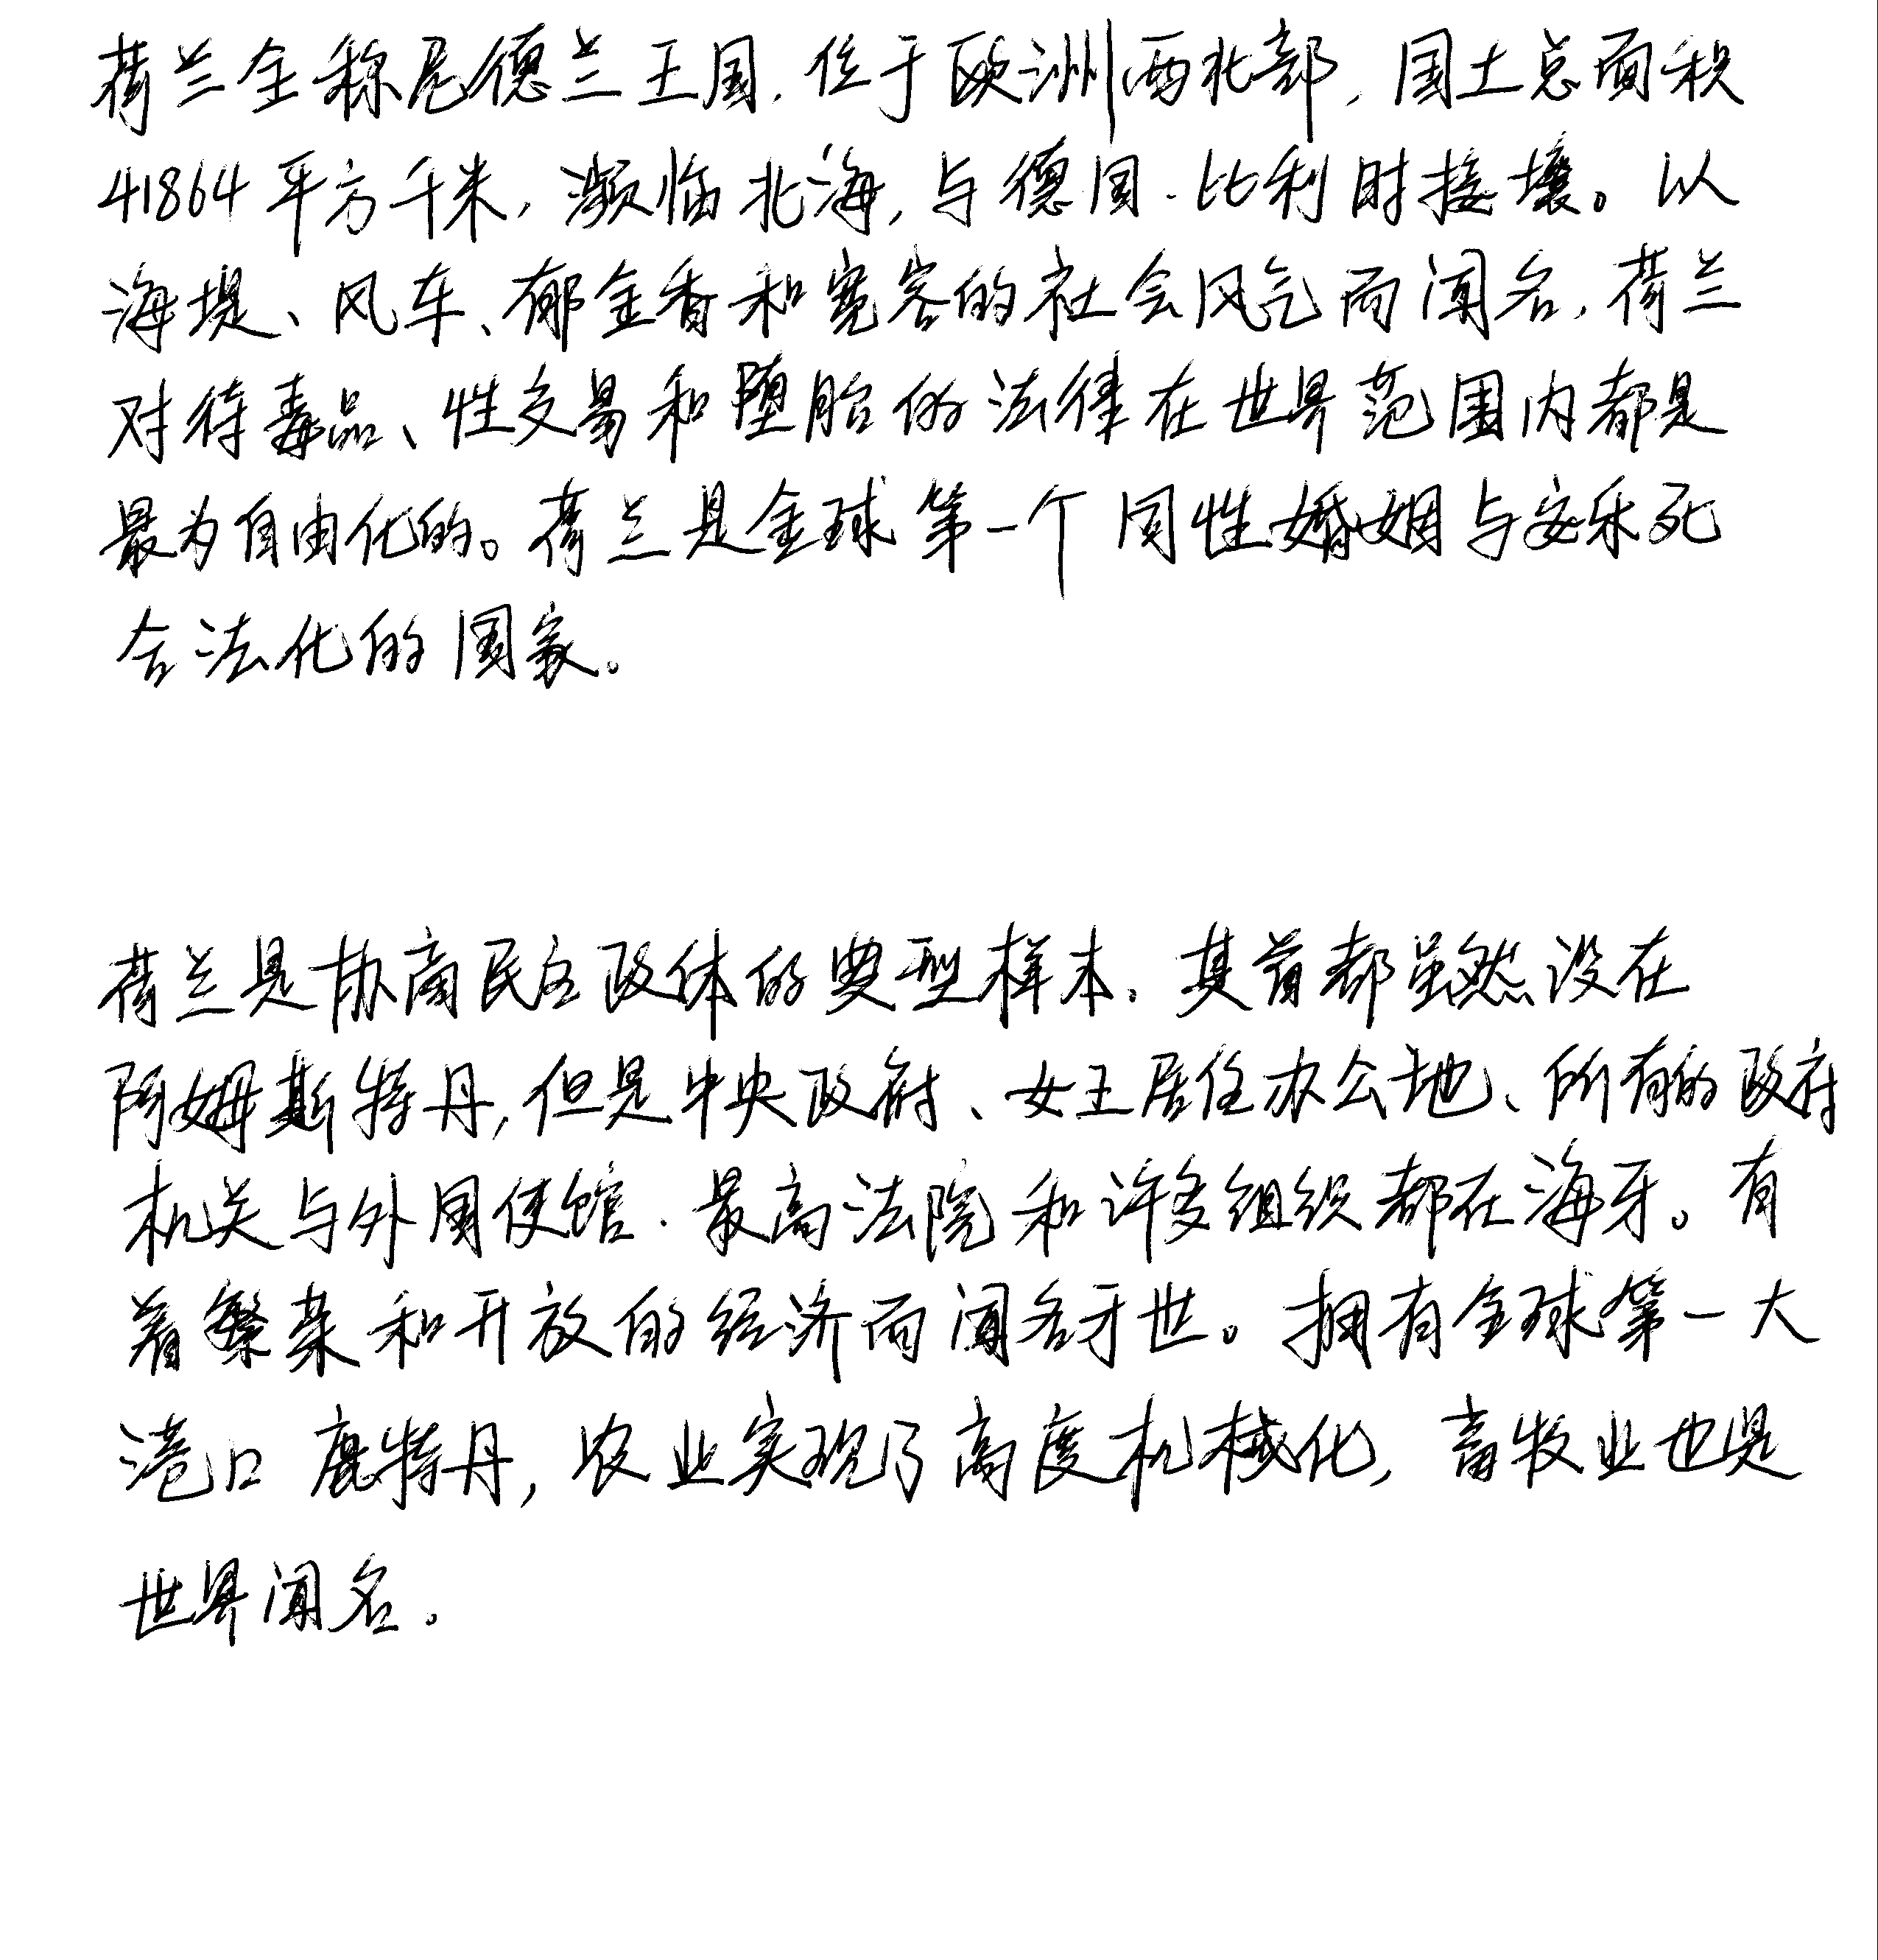 荷兰全称尼德兰王国,位于欧洲西北部,国土总面积
41864平方千米,濒临北海,与德国、比利时接壤。以
海堤、风车、郁金香和宽容的社会风气而闻名,荷兰
对待毒品、性交易和堕胎的法律在世界范围内都是
最为自由化的。荷兰是全球第一个同性婚姻与安乐死
合法化的国家。
荷兰是协商民主政体的典型样本,其首都虽然设在
阿姆斯特丹,但是中央政府、女王居住办公地、所有的政府
机关与外国使馆、最高法院和许多组织都在海牙。有
着繁荣和开放的经济而闻名于世。拥有全球第一大
港口鹿特丹,农业实现了高度机械化,畜牧业也是
世界闻名。